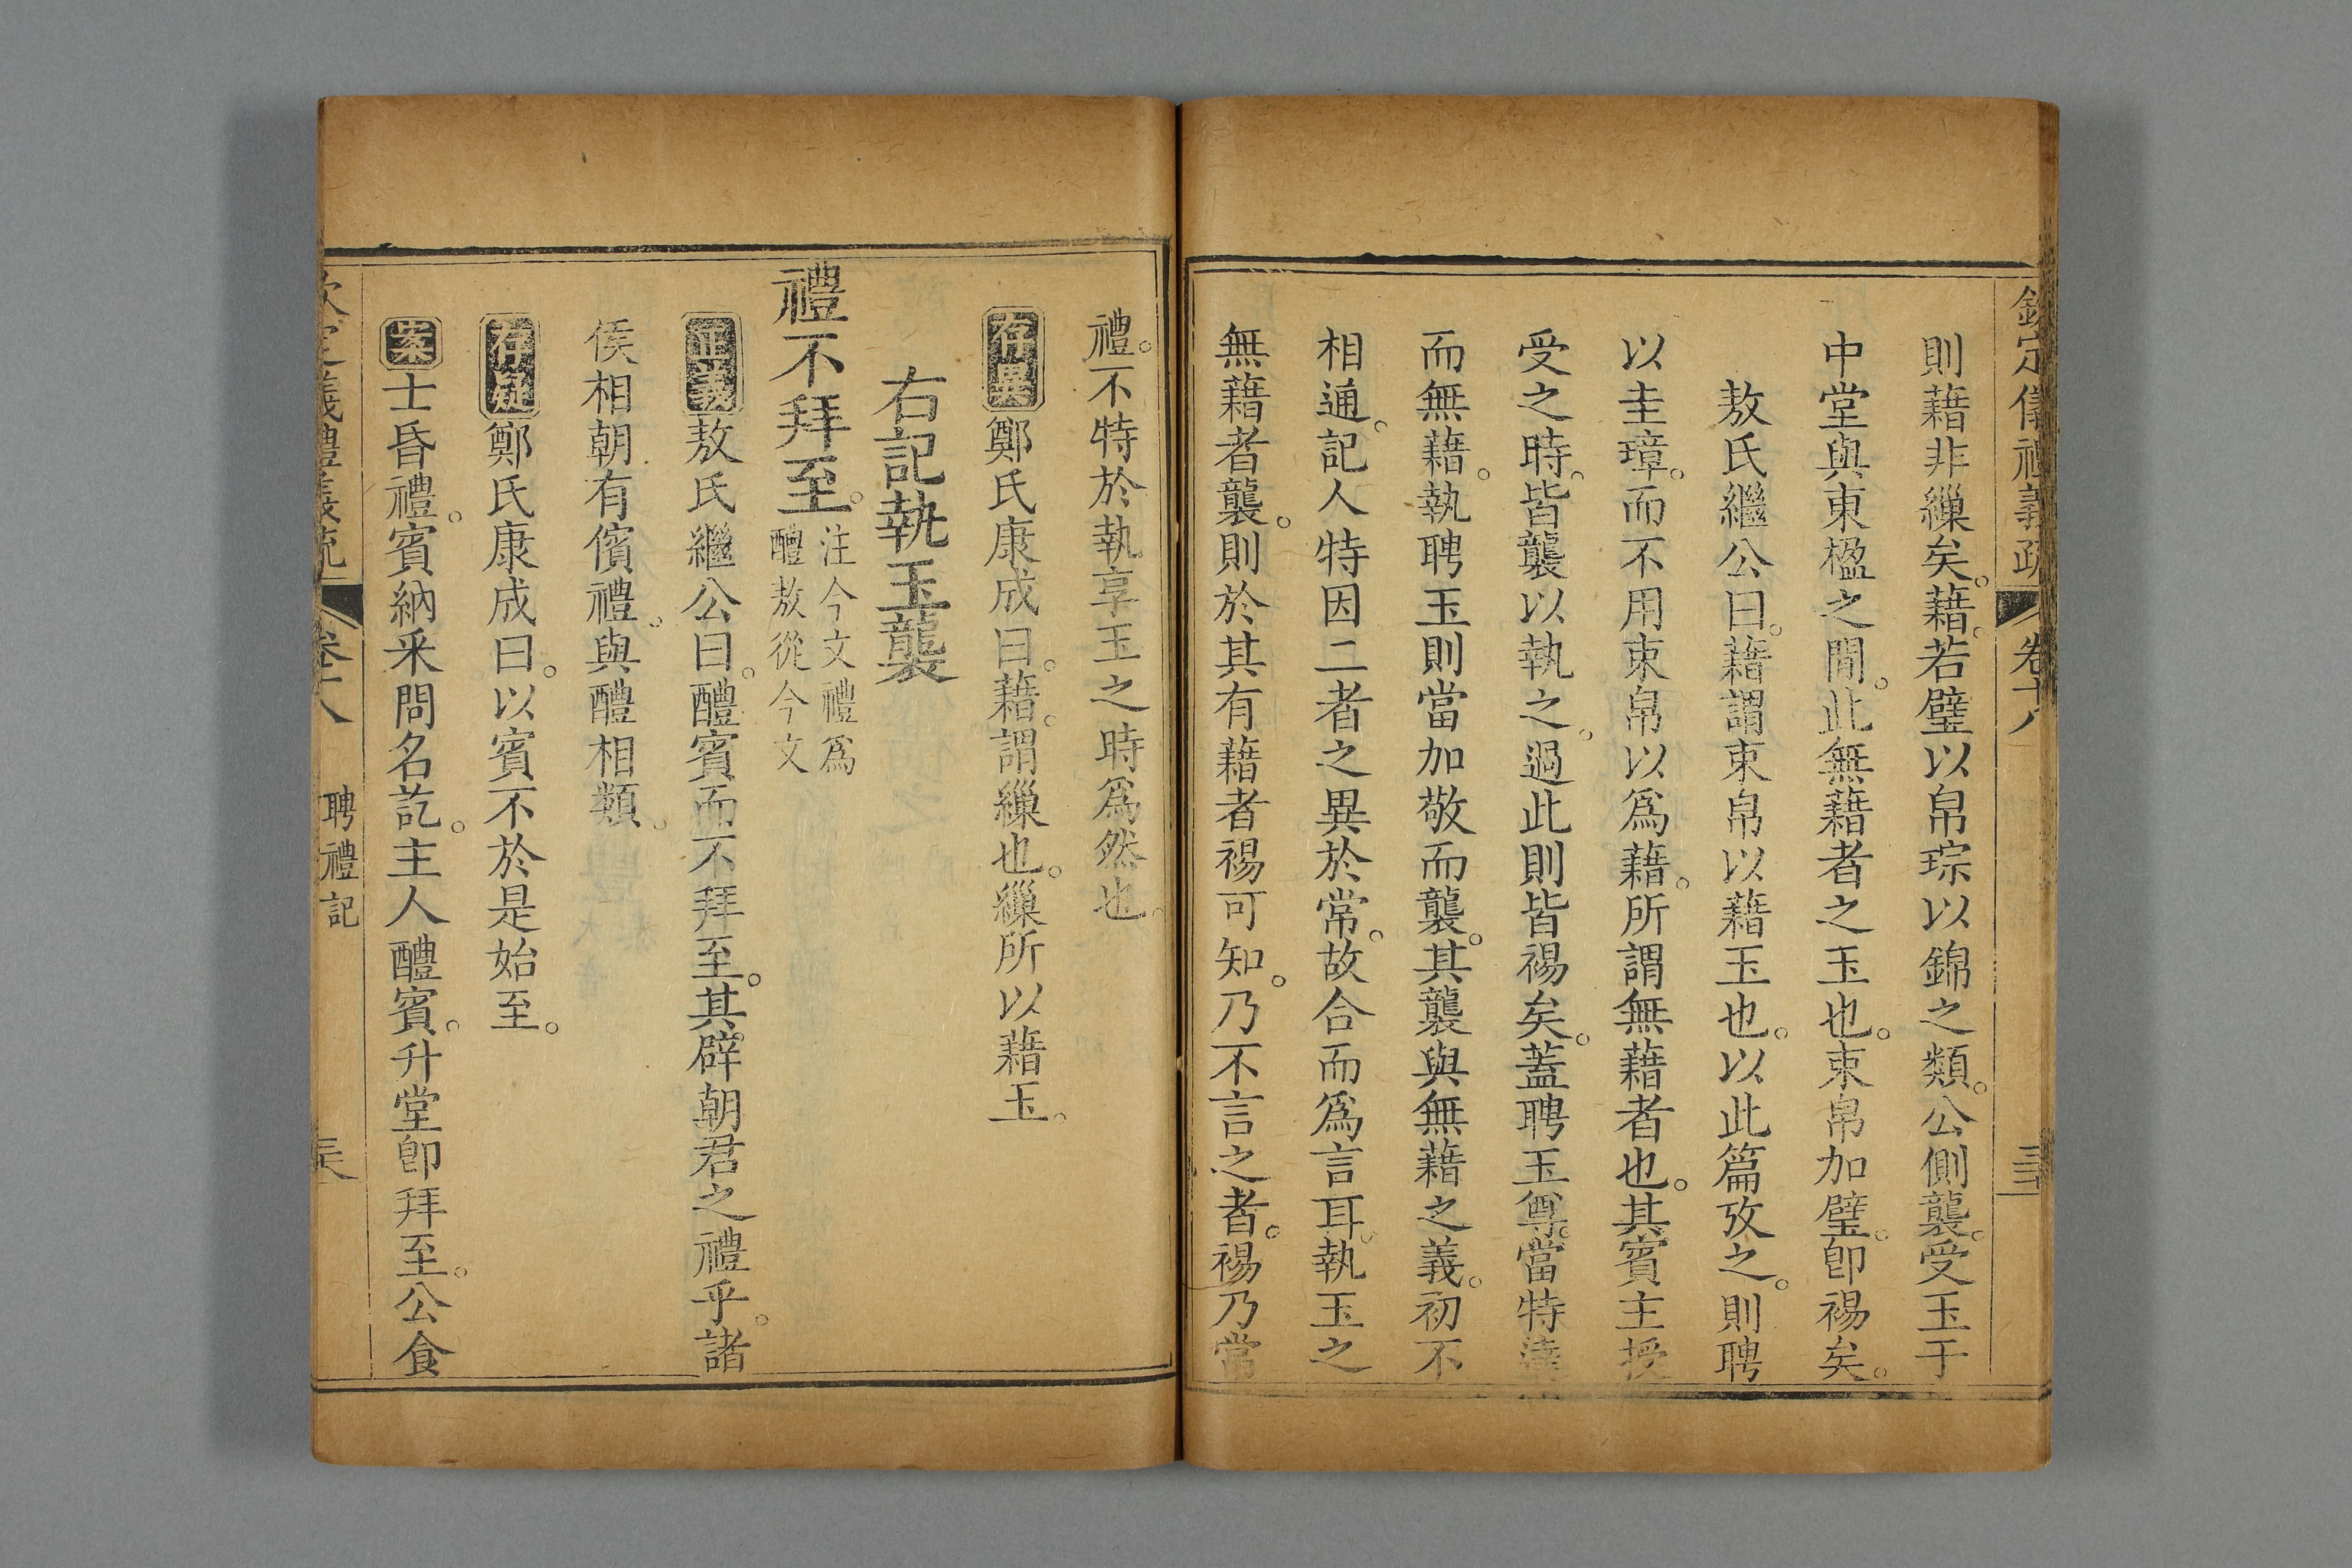 欽定儀禮義疏 卷十八
則藉非繅矣。藉。若璧以帛琮以錦之類。公側襲。受玉于
中堂與東楹之閒。此無藉者之玉也。束帛加璧。卽裼矣。
敖氏繼公曰。藉謂束帛以藉玉也。以此篇攷之。則聘
以圭璋。而不用束帛以爲藉。所謂無藉者也。其賓主授
受之時。皆襲以執之。過此則皆裼矣。蓋聘玉尊。當特達
而無藉。執聘玉則當加敬而襲。其襲與無藉之義。初不
相通。記人特因二者之異於常。故合而爲言耳。執玉之
無藉者襲。則於其有藉者裼可知。乃不言之者。裼乃常
禮。不特於執享玉之時爲然也。
存異鄭氏康成曰。藉。謂繅也。繅所以藉玉。
右記執玉襲
禮不拜至。注今文禮爲
醴敖從今文
正義敖氏繼公曰。醴賓而不拜至。其辟朝君之禮乎。諸
侯相朝有儐禮。與醴相類。
存疑鄭氏康成曰。以賓不於是始至。
案士昏禮。賓納采問名訖。主人醴賓。升堂卽拜至。公食
欽定儀禮義疏 卷十八 聘禮記